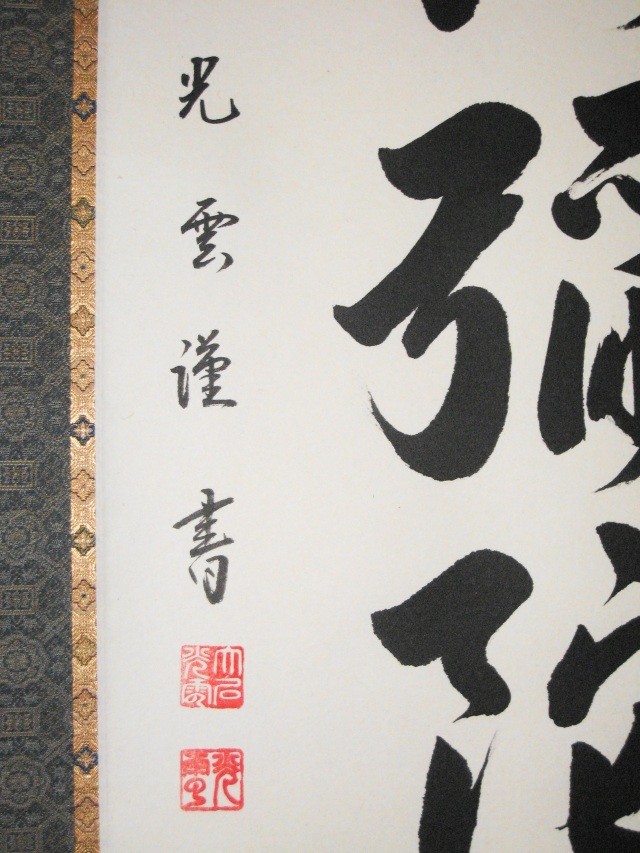 彌陀
光雲謹書